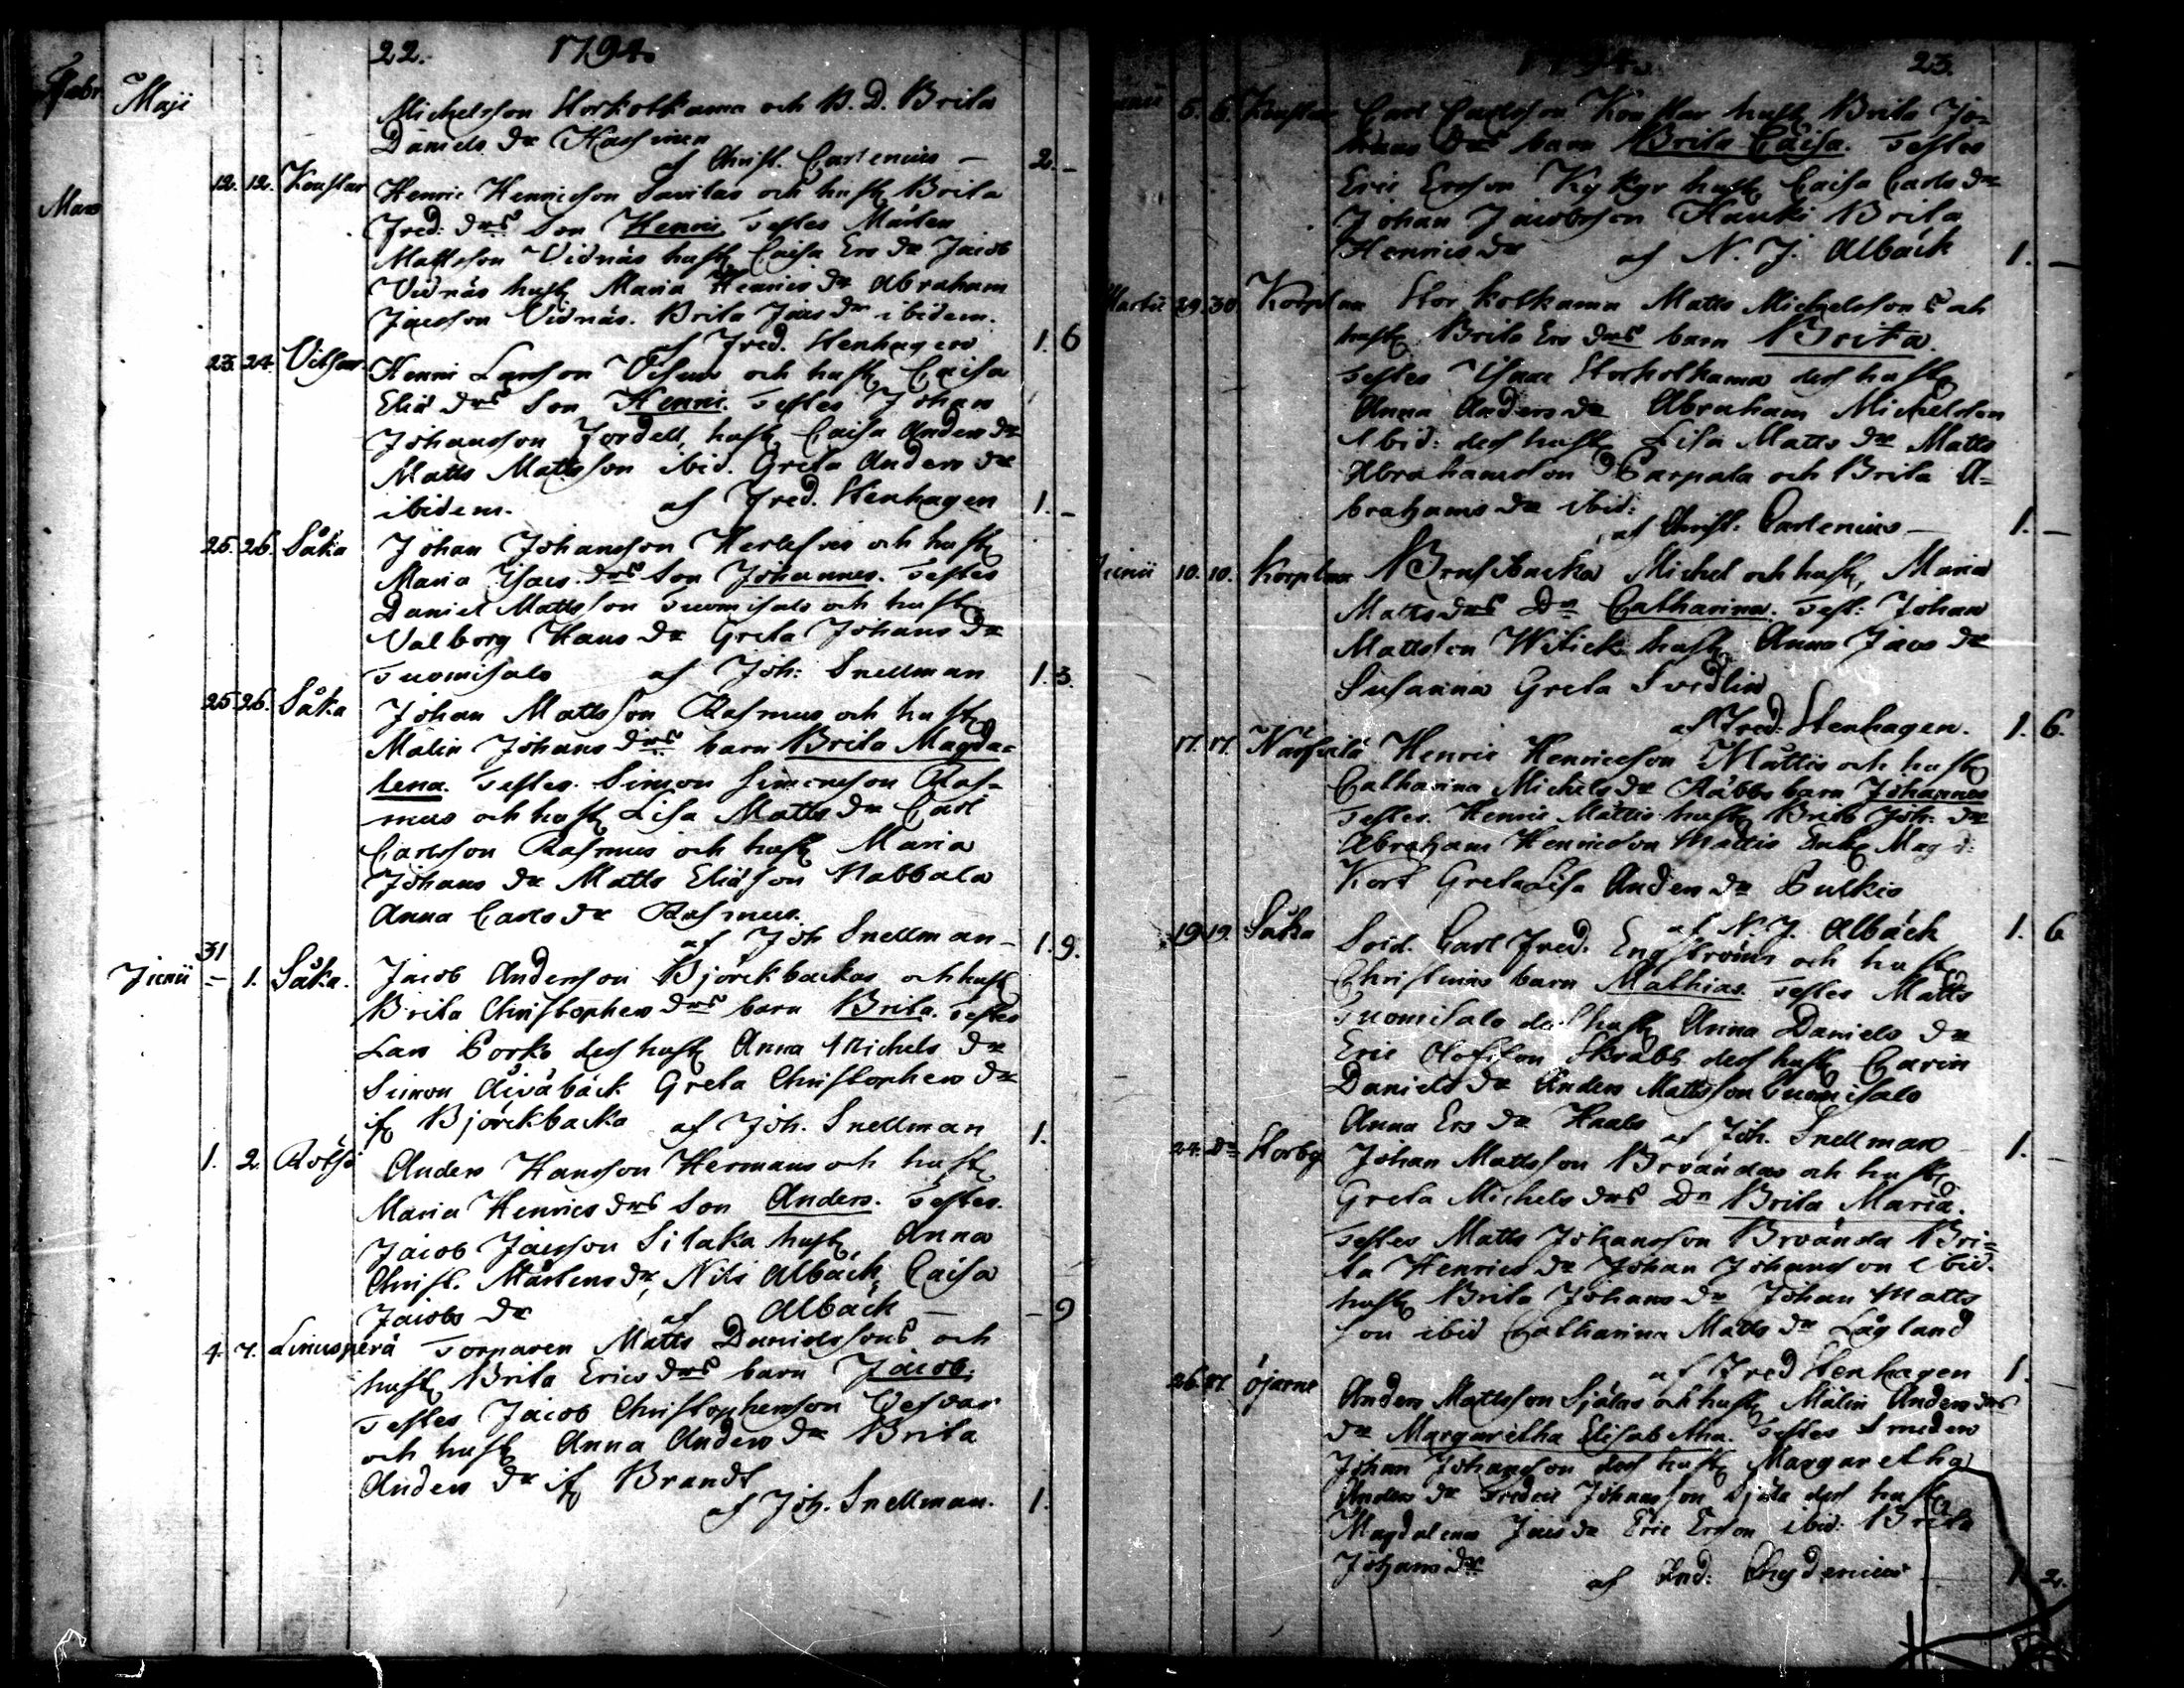 22. 1794.
Maji
Michelsson Storkolkama och B. D. Brita
Daniels Dr
af Christ. Cartenius - 2. -
12. 12. Konstar Henric Henricsson Savilas och hust. Brita
Fred: Drs Son Henric Testes Mårten
Mattsson Vidnäs hust. Caisa Ers Dr Jacob
Vidnäs hust. Maria Henrics Dr Abraham
Jacsson Vidnäs. Brita Jacs Dr ibidem.
af Fred. Stenhagen 1. 6
23. 24. Vitsar Henric Larsson Vitsar och hust. Caisa
Eliæ Drs Son Henric. Testes Johan
Johansson Jordell, hust. Caisa Anders Dr
Matts Mattsson ibid. Greta Anders Dr
ibidem. af Fred. Stenhagen 1. -
25. 26. Såka Johan Johansson och hust.
Maria Isacs Drs Son Johannes. Testes
Daniel Mattsson Tuomisalo och hust.
Valborg Hans Dr Greta Johans Dr
Tuomisalo af Joh: Snellman 1. 3.
25 26. Såka Johan Mattsson Rasmus och hust.
Malin Johans Drs barn Brita Magda=
lena. Testes. Simon Simonsson Ras=
mus och hust. Lisa Matts Dr Carl
Carlsson Rasmus och hust. Maria
Johans Dr Matts Eliæson Nabbala
Anna Carls Dr Rasmus.
af Joh Snellman - 1. 9.
Junii 31 - 1. Såka. Jacob Andersson Björckbackas och hust.
Brita Christophers Drs barn Brita. Testes
Lars Pork dess hust. Anna Michels Dr
Simon Åivabäck Greta Christophers Dr
if. Björckbacka af Joh. Snellman 1.
1. 2. Rötsö Anders Hansson Hermans och hust.
Maria Henrics Drs Son Anders. Testes.
Jacob Jacsson Silaka hust. Anna
Christ. Mårtens Dr, Nils Albäck, Caisa
Jacobs Dr af Albäck - - 9
4. 7. Linusperä Torparen Matts Danielssons och
hust. Brita Erics Drs barn Jacob.
Testes Jacob Christophersson
och hust. Anna Anders Dr Brita
Anders Dr if. Brandt
af Joh. Snellman. 1.
1794. 23.
5. 6. Konstar Carl Carlsson Konstar hust. Brita Jo=
hans Drs barn Brita Caisa. Testes
Eric Ersson Kykyr hust. Caisa Carls Dr
Johan Jacobsson Hauki Brita
Henrics Dr af N. J. Albäck 1. -
Martii 29. 30 Korplax Storkolkama Matts Michelssons och
hust. Brita Ers Drs barn Brita.
Testes Isaac Storkolkama dess hust.
Anna Anders Dr Abraham Michelsson
ibid: dess hust. Lisa Matts Dr Matts
Abrahamsson Parpala och Brita A=
brahams Dr ibid:
af Christ: Cartenius - 1. -
Junii 10. 10. Korplax Michel och hust. Maria
Matts Drs Dr Catharina. Test: Johan
Mattsson Witick hust. Anna Jacs Dr
Susanna Greta Svedlin
af Fred: Stenhagen. 1. 6.
17. 17. Närvilä Henric Henricsson Mattis och hust.
Catharina Michels Dr Räbbs barn Johannes
Testes. Henric Mattis hust. Brita Joh: Dr
Abraham Henricsson Mattis Enk. Magd:
Kort Greta Lisa Anders Dr Pulkis
af N. J. Albäck 1. 6
19. 19. Såka Sold. Carl Fred. Engströms och hust.
Christinas barn Mathias. Testes Matts
Tuomisalo dess hust. Anna Daniels Dr
Eric Olofsson Skrabb dess hust. Carin
Daniels Dr Anders Mattsson Tuomisalo
Anna Ers Dr Haals af Joh. Snellman 1. -
24. Do Storby Johan Mattsson Brvändas och hust.
Greta Michels Drs Dr Brita Maria.
Testes Matts Johansson Brvända Bri=
ta Henrics Dr Johan Johansson ibid.
hust. Brita Johans Dr Johan Matts
son ibid Catharina Matts Dr Lågland
af Fred Stenhagen 1.
26. 27 Öjarne Anders Mattsson Själas och hust. Malin Anders Drs
Dr Margaretha Elisabetha. Testes Smeden
Johan Johansson dess hust. Margaretha
Anders Dr Fredric Johansson Själa dess hust.
Magdalena Jacs Dr Eric Ersson ibid: Brita
Johans Dr af And: Chydenius 1. 2.